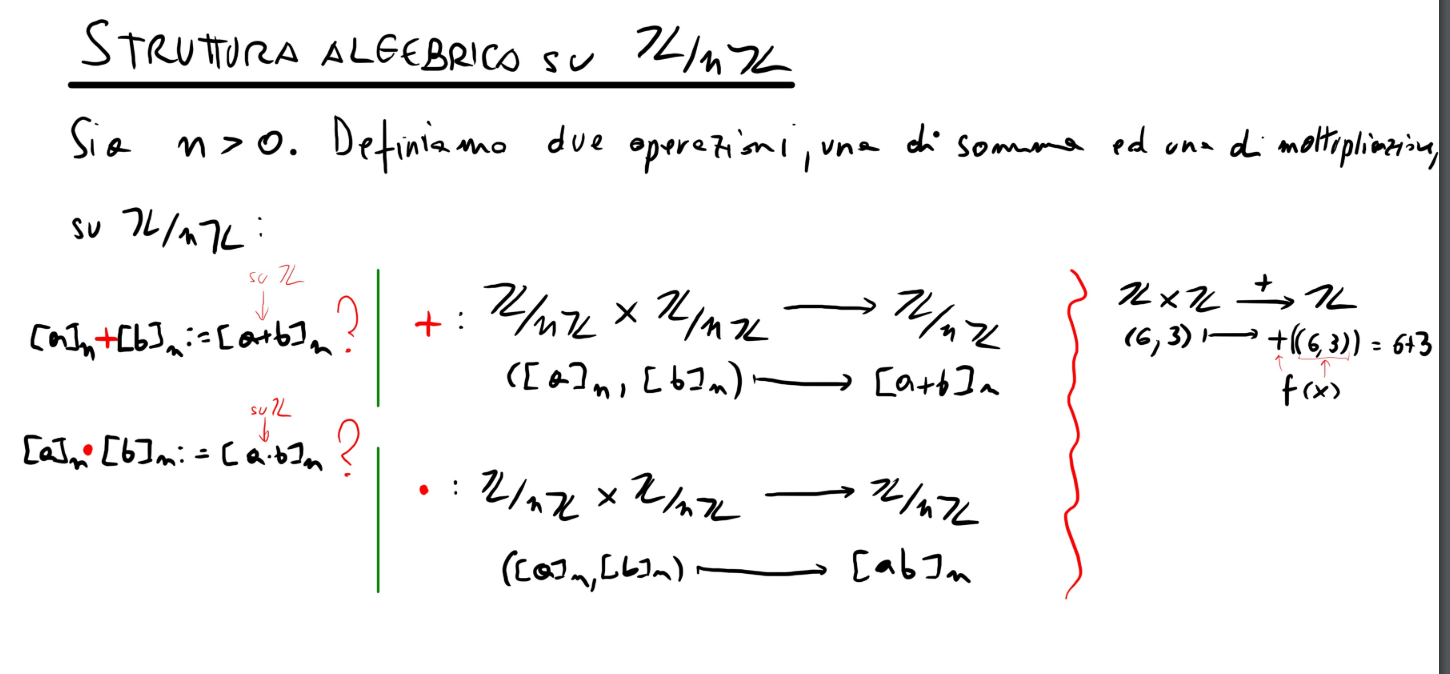 STRUTTURA ALGEBRICA SU ℤ/nℤ
Sia n > 0. Definiamo due operazioni, una di somma ed una di moltiplicazione,
su ℤ/nℤ :
su ℤ
↓
[a]ₙ+[b]ₙ := [a+b]ₙ ?
su ℤ
↓
[a]ₙ • [b]ₙ := [a·b]ₙ ?
+ : ℤ/nℤ × ℤ/nℤ ⟶ ℤ/nℤ
([a]ₙ, [b]ₙ) ⟼ [a+b]ₙ
• : ℤ/nℤ × ℤ/nℤ ⟶ ℤ/nℤ
([a]ₙ, [b]ₙ) ⟼ [ab]ₙ
ℤ × ℤ ⟶⁺ ℤ
(6,3) ⟼ +((6,3)) = 6+3
↑ ↑
f(x)